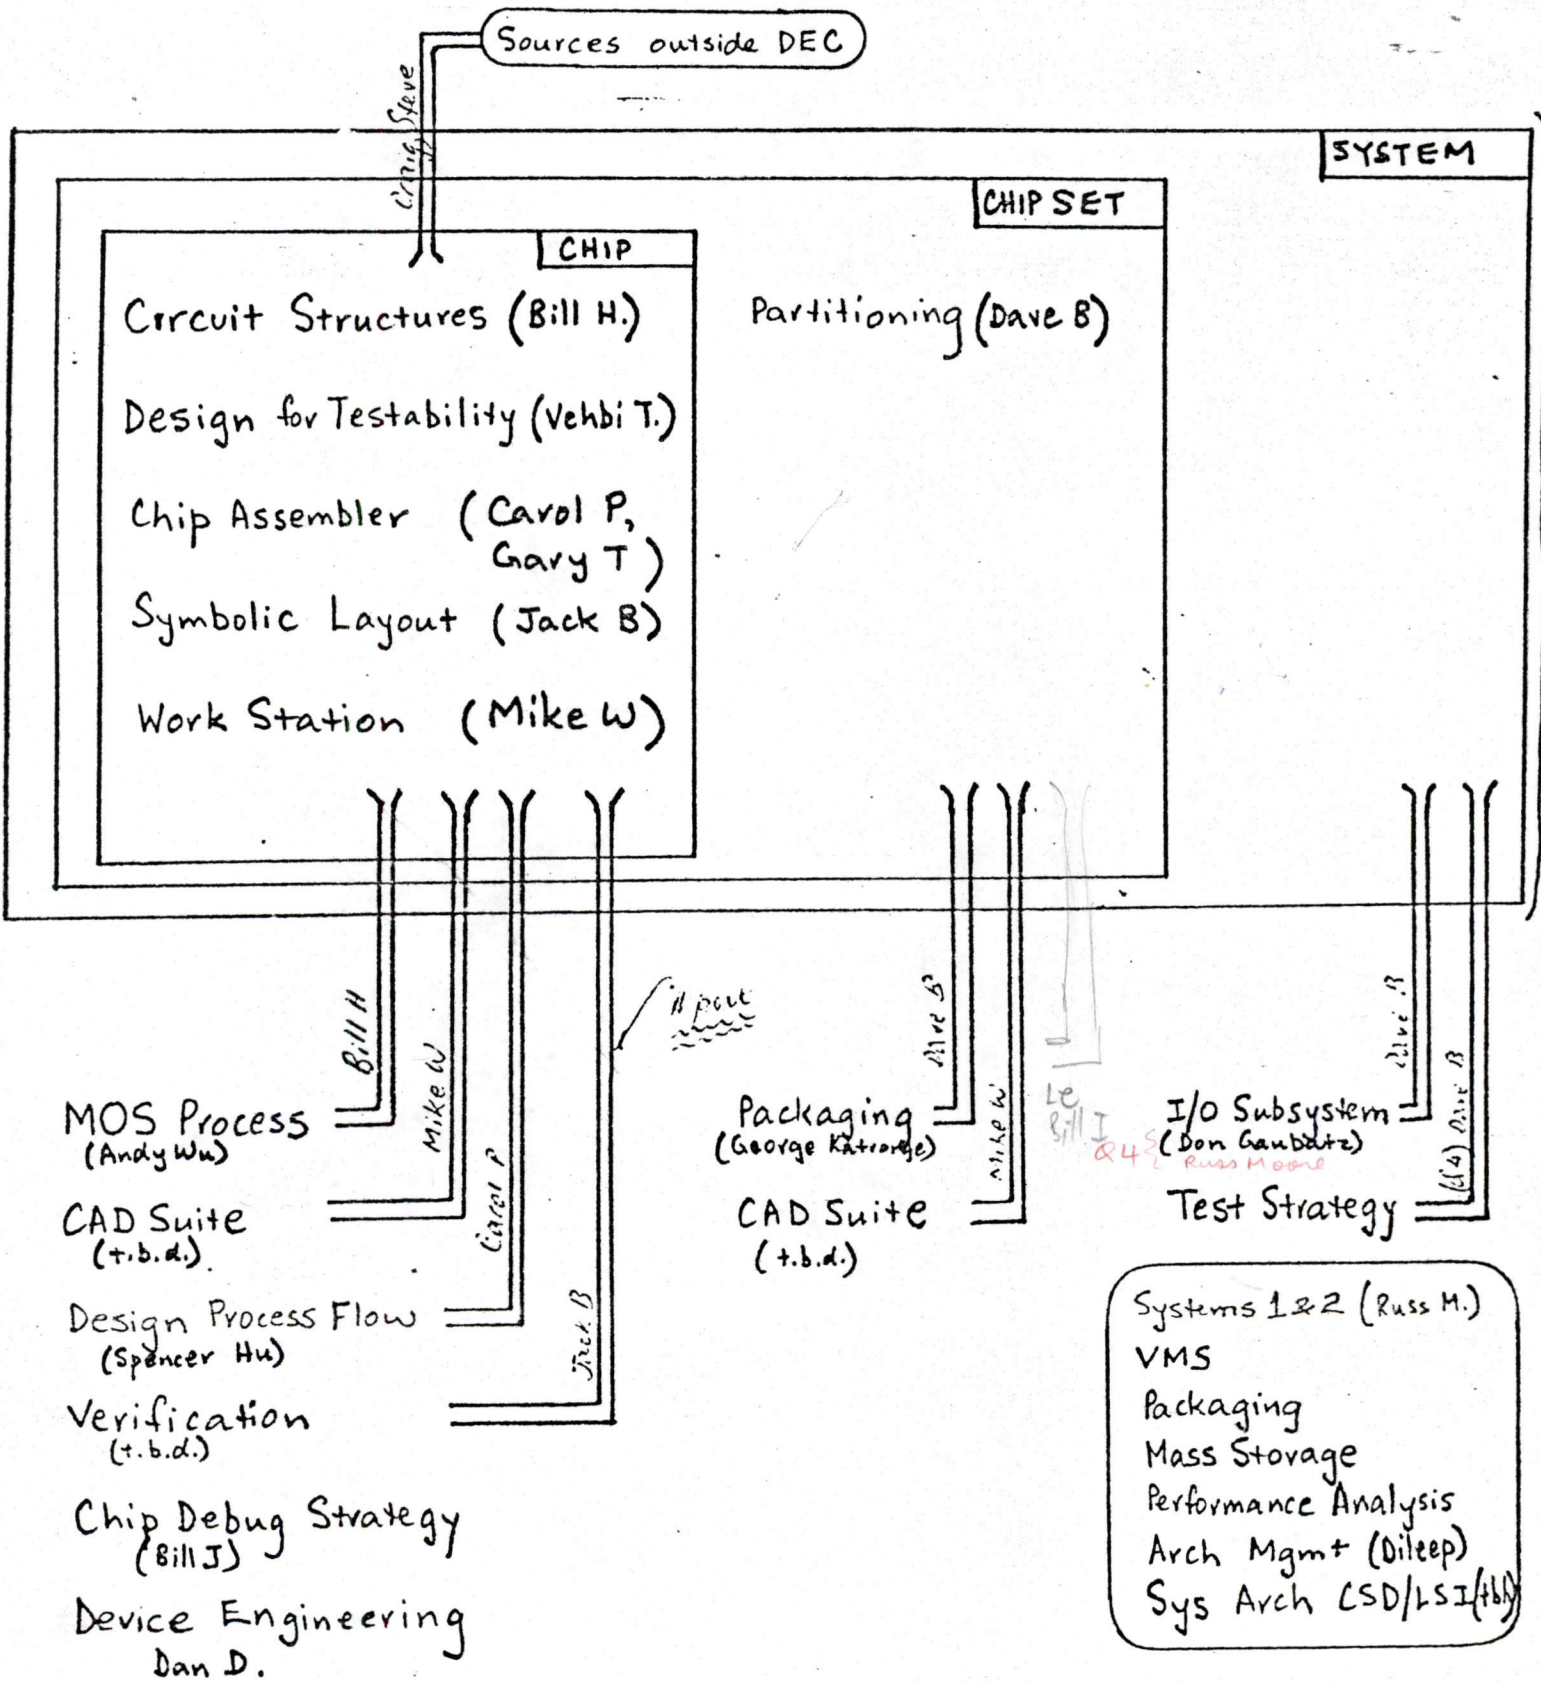 Sources outside DEC
Craig, Steve
SYSTEM
CHIP SET
CHIP
Circuit Structures (Bill H.)
Partitioning (Dave B)
Design for Testability (Vehbi T.)
Chip Assembler (Carol P,
Gary T)
Symbolic Layout (Jack B)
Work Station (Mike W)
Bill H
Mike W
Carol P
Jack B
Dave B
Mike W
Dave B
(Q4) Dave B
MOS Process
(Andy Wu)
CAD Suite
(t.b.d.)
Design Process Flow
(Spencer Hu)
Verification
(t.b.d.)
Chip Debug Strategy
(Bill J)
Device Engineering
Dan D.
Packaging
CAD Suite
(t.b.d.)
Bill I
I/O Subsystem
(Don Gaubatz)
Q4 { Russ Moore
Test Strategy
Systems 1 & 2 (Russ M.)
VMS
Packaging
Mass Storage
Performance Analysis
Arch Mgmt (Dileep)
Sys Arch CSD/LSI (tbh)